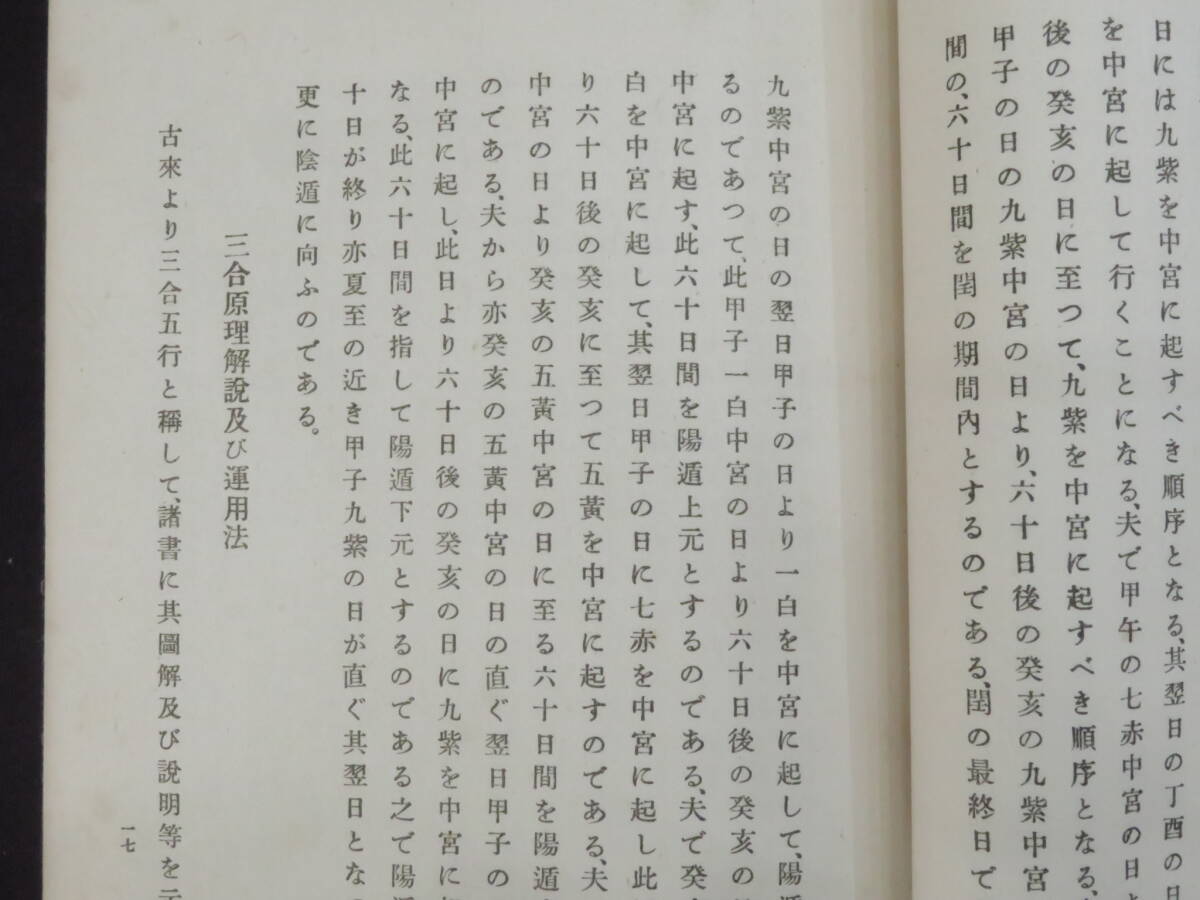 日には九紫を中宮に起すべき順序となる、其翌日の丁酉の日
を中宮に起して行くことになる、夫で甲午の七赤中宮の日
後の癸亥の日に至つて、九紫を中宮に起すべき順序となる、
甲子の日の九紫中宮の日より、六十日後の癸亥の九紫中宮
間の、六十日間を閏の期間內とするのである、閏の最終日で
九紫中宮の日の翌日甲子の日より一白を中宮に起して、陽
るのであつて、此甲子一白中宮の日より六十日後の癸亥の
中宮に起す、此六十日間を陽遁上元とするのである、夫で癸
白を中宮に起して、其翌日甲子の日に七赤を中宮に起し此
り六十日後の癸亥に至つて五黃を中宮に起すのである、夫
中宮の日より癸亥の五黃中宮の日に至る六十日間を陽遁
のである、夫から亦癸亥の五黃中宮の日の直ぐ翌日甲子の
中宮に起し、此日より六十日後の癸亥の日に九紫を中宮に
なる、此六十日間を指して陽遁下元とするのである之で陽
十日が終り亦夏至の近き甲子九紫の日が直ぐ其翌日とな
更に陰遁に向ふのである。
三合原理解說及び運用法
古來より三合五行と稱して、諸書に其圖解及び說明等を
一七